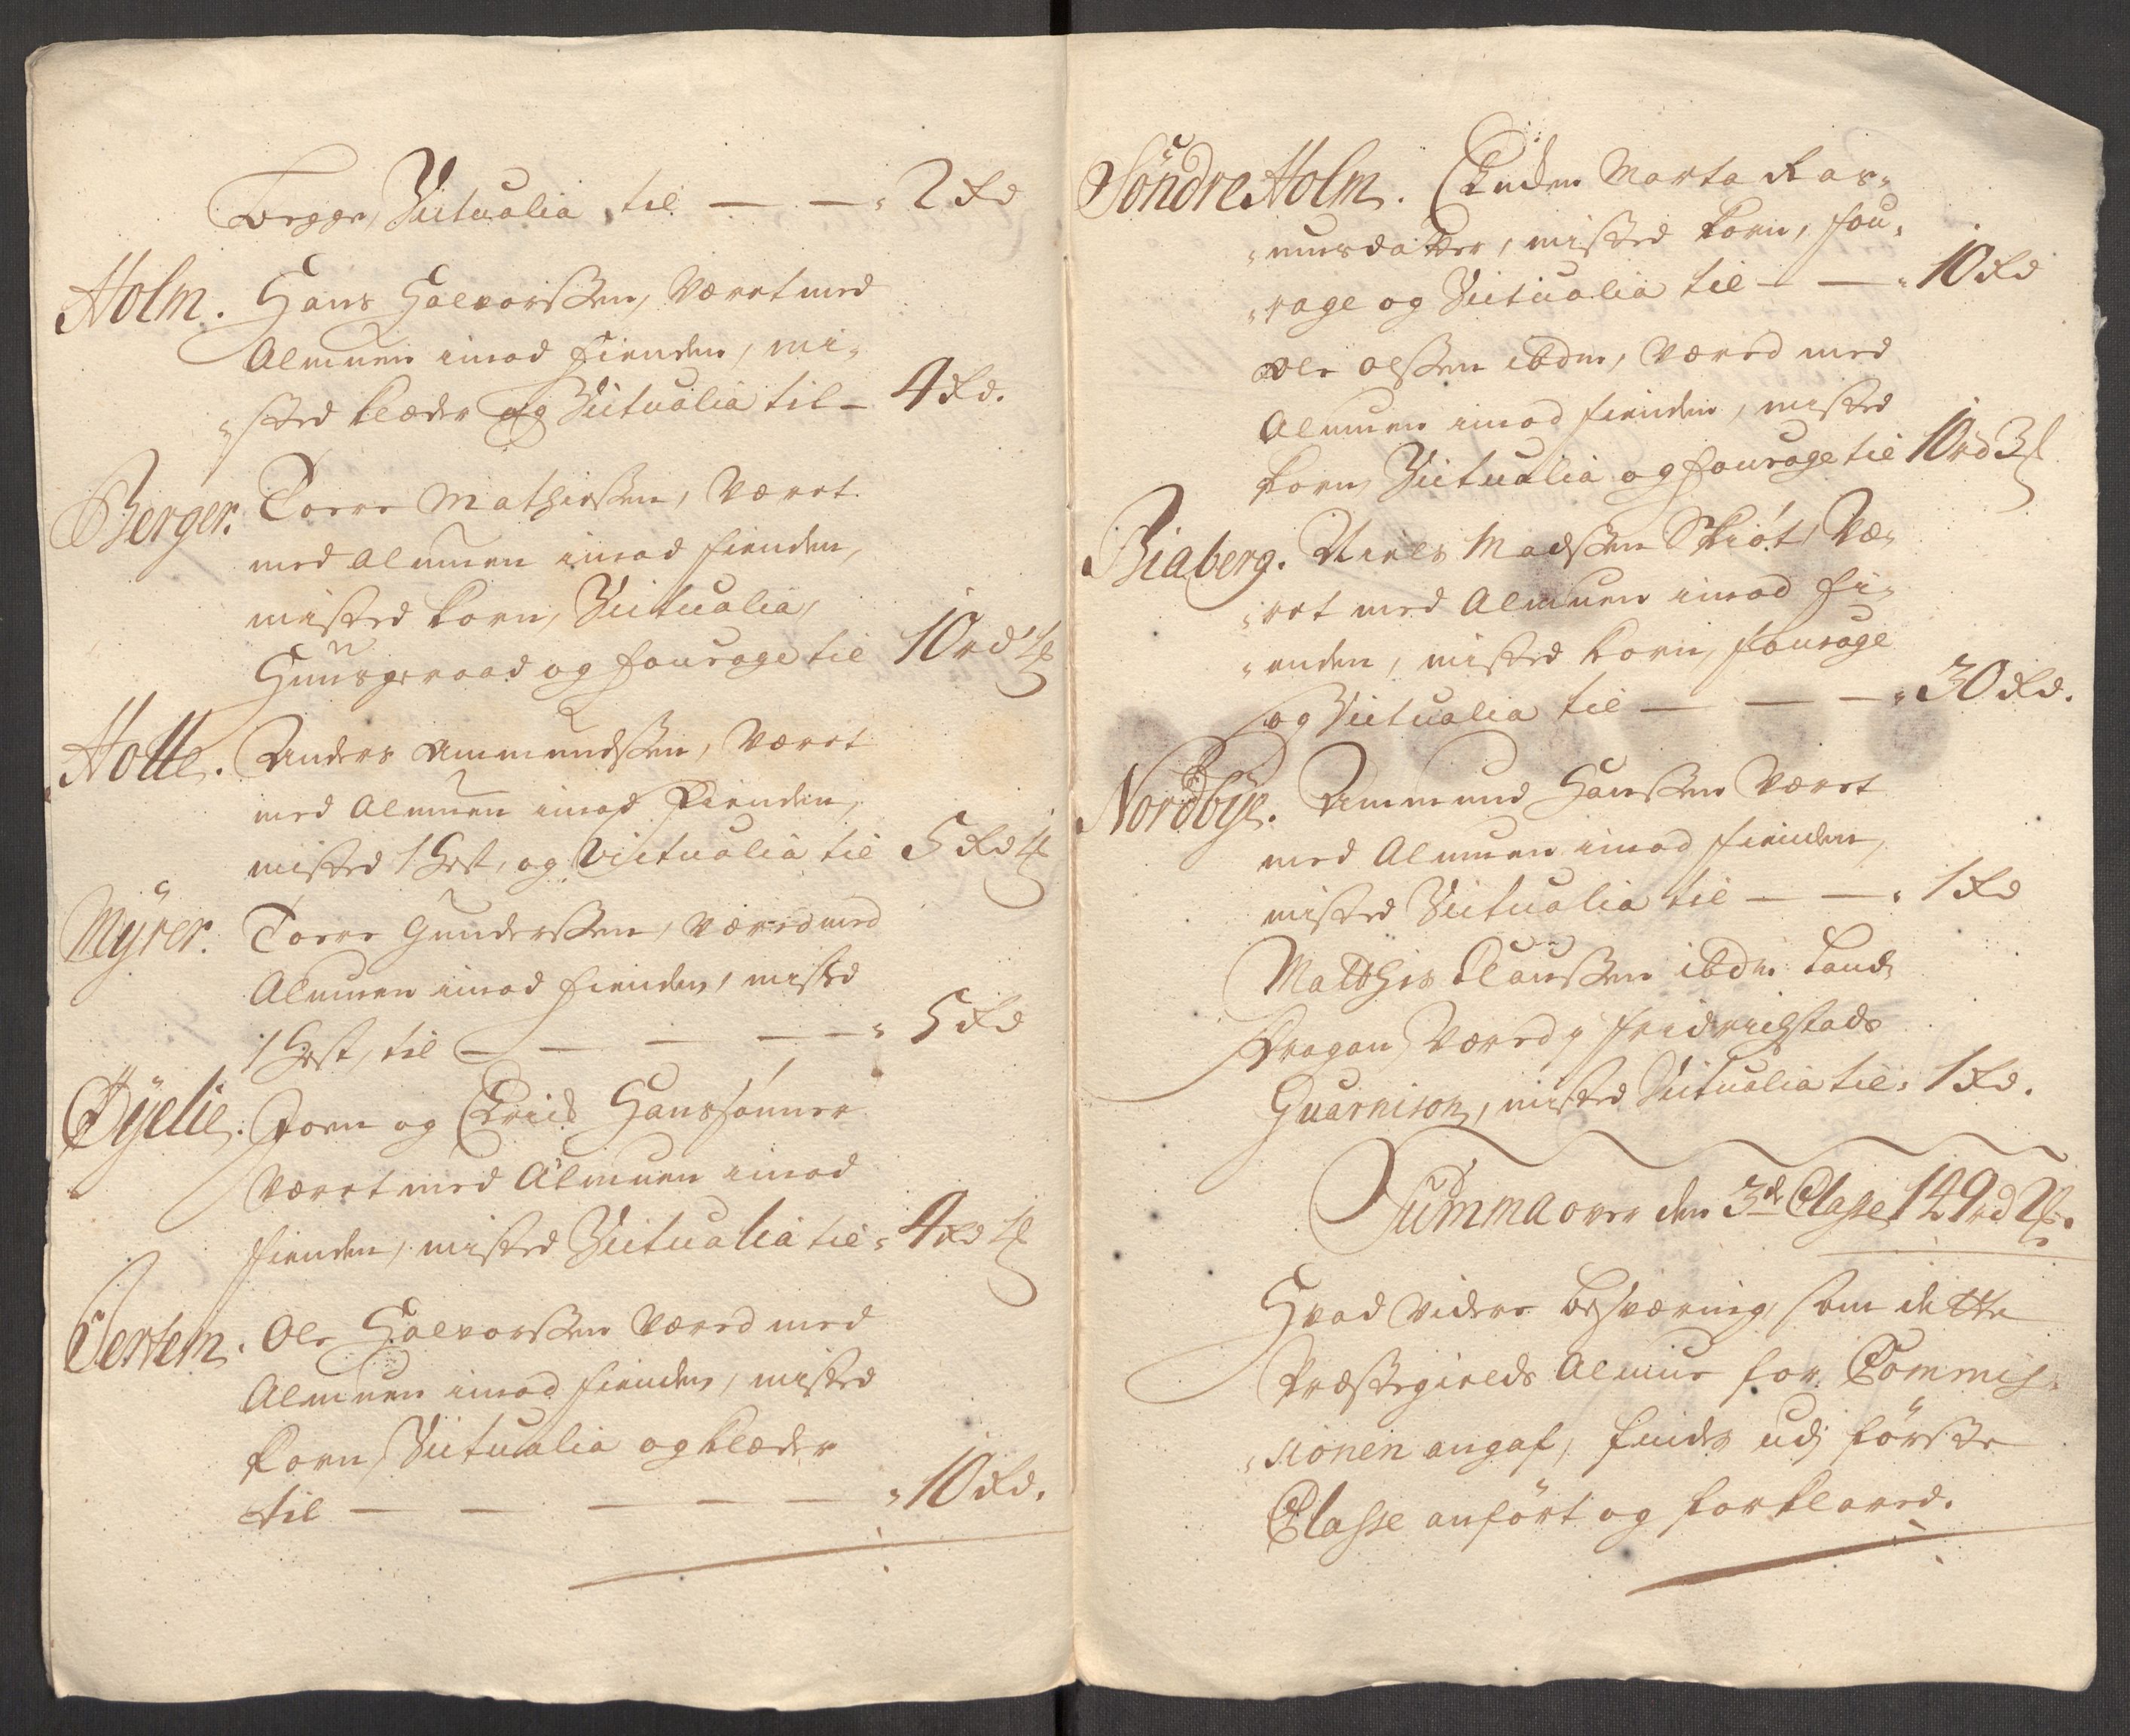 Begge, Victualia til — — " 2 Rd
Holm. Hans Halvorssen, Været med
Almuen imod fienden, mi-
"sted klæder og Victualia til – 4 Rd.
Berger. Torre Mathiessen, Været
med Almuen imod fienden,
misted korn, Victualia,
Huusgeraad og fourage til 10 rd
Holte. Anders Ammundssen, Været
med Almuen imod Fienden,
misted 1 Hest, og Victualia til 5 Rd
Myrer. Torre Gunderssen, Væred med
Almuen imod fienden, misted
1 Hest, til — — — — — " 5 Rd
Byelie. Joen og Erich Hanssønner
Været med Almuen imod
fienden, misted Victualia til " 4 Rd
Ole Halvorssen Væred med
Almuen imod fienden, misted
Korn, Victualia og klæder
til — — — — — " 10 Rd.
Söndre Holm. Enken Marta Ras-
"musdatter, misted korn, fou-
"rage og Victualia til — — " 10 Rd
Ole Olssen ibdm, Væred med
Almuen imod fienden, misted
korn, Victualia og fourage til 10 rd
Biaberg. Niels Madssen Skiøt, Væ-
"ret med Almuen imod fi-
"enden, misted korn, fourage
og Victualia til — — — " 30 Rd.
Nordbye. Ammund Hanssen Været
med Almuen imod fienden,
misted Victualia til — — " 1 Rd
Matthis Claussen ibdm Land
Dragon, Væred i Friderichstads
Guarnison, misted Victualia til " 1 Rd.
Summa over den 3de Classe 149 rd
Hvad Videre besværing som dette
Præstegields Almue for Commis-
"sionen angaf, findes udj første
Classe anført og forklared.